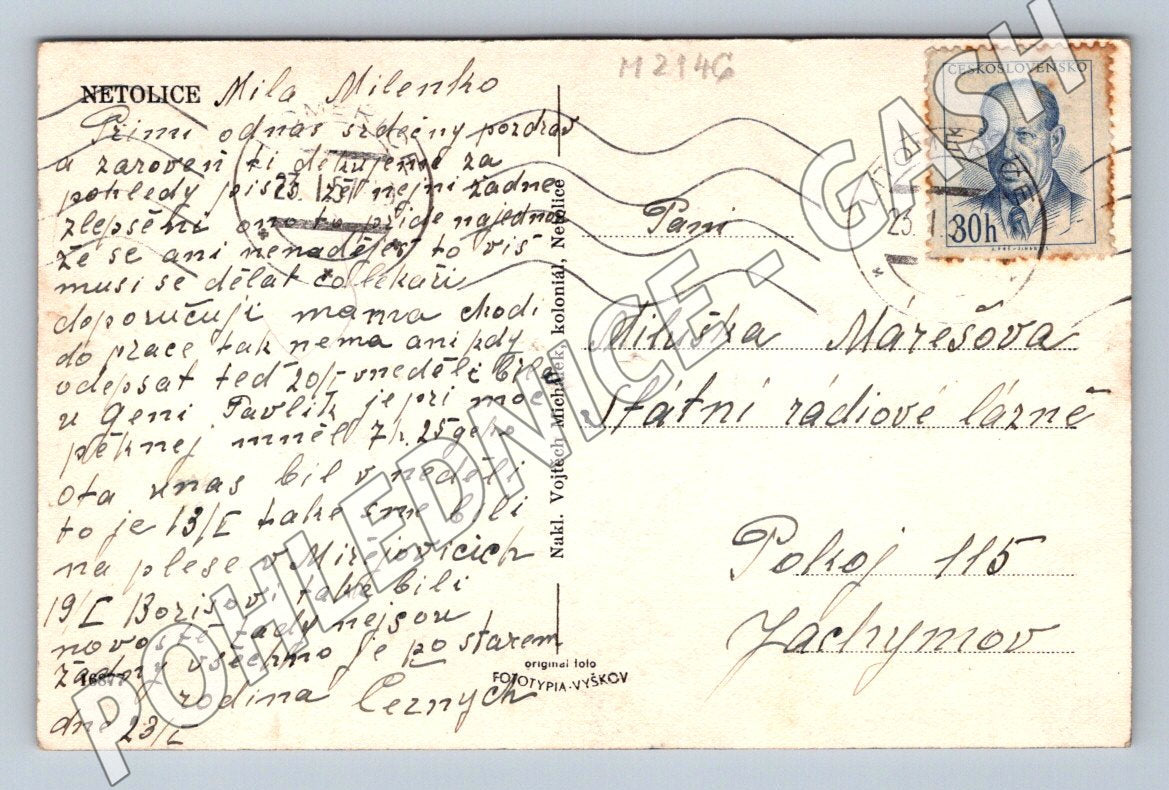 NETOLICE
M 2946
Mila Milenko
Primi odnas srdečny pozdrav
a zaroveň ti děkujeme za
pohledy že nejni žadne
zlepšeni ono to přide najednou
že se ani nenaděješ to viš
musi se dělat co lekaři
doporučuji mama chodi
do prace tak nema ani kdy
odepsat teď 20/I vneděli bila
u Geni Pavlik je pri moc
pěknej mněl 7 k. 25
Ota unas bil v neděli
to je 13/I take sme byli
na plese v Mirějovicich
19/I Borisovi take bili
novosti tady nejsou
žadny všechno je po starem
16877
rodina Černych
dne 23/I
Nakl. Vojtěch Michálek, koloniál, Netolice
original foto
FOTOTYPIA-VYŠKOV
ČESKOSLOVENSKO
30h
23. I.
Paní
Miluška Marešova
Státní rádiové lázně
Pokoj 115
Jachymov
POHLEDNICE - GASH